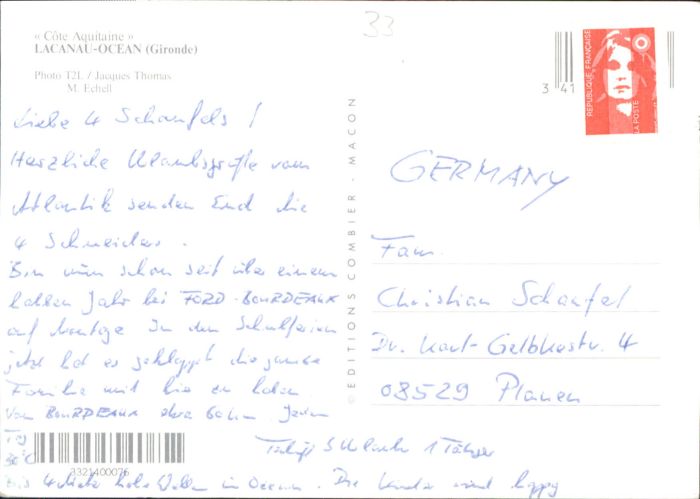 33
« Côte Aquitaine »
LACANAU-OCEAN (Gironde)
Photo T2L / Jacques Thomas
M. Echell
3 41
REPUBLIQUE FRANÇAISE
LA POSTE
© EDITIONS COMBIER - MACON
Liebe 4 Schaufels !
Herzliche Urlaubsgrüße vom
Atlantik senden Euch die
4 Schneiders.
Bin nun schon seit über einem
halben Jahr bei FORD-BOURDEAUX
auf Montage In den Schulferien
jetzt hat es geklappt die ganze
Familie mit hier zu haben.
Von BOURDEAUX etwa 60 km Jeden
Tag
30°C
3321400076
Bis 4 Meter hohe Wellen im Ozean. Die Kinder sind happy
GERMANY
Fam.
Christian Schaufel
Dr. Karl-Gelbkestr. 4
08529 Plauen